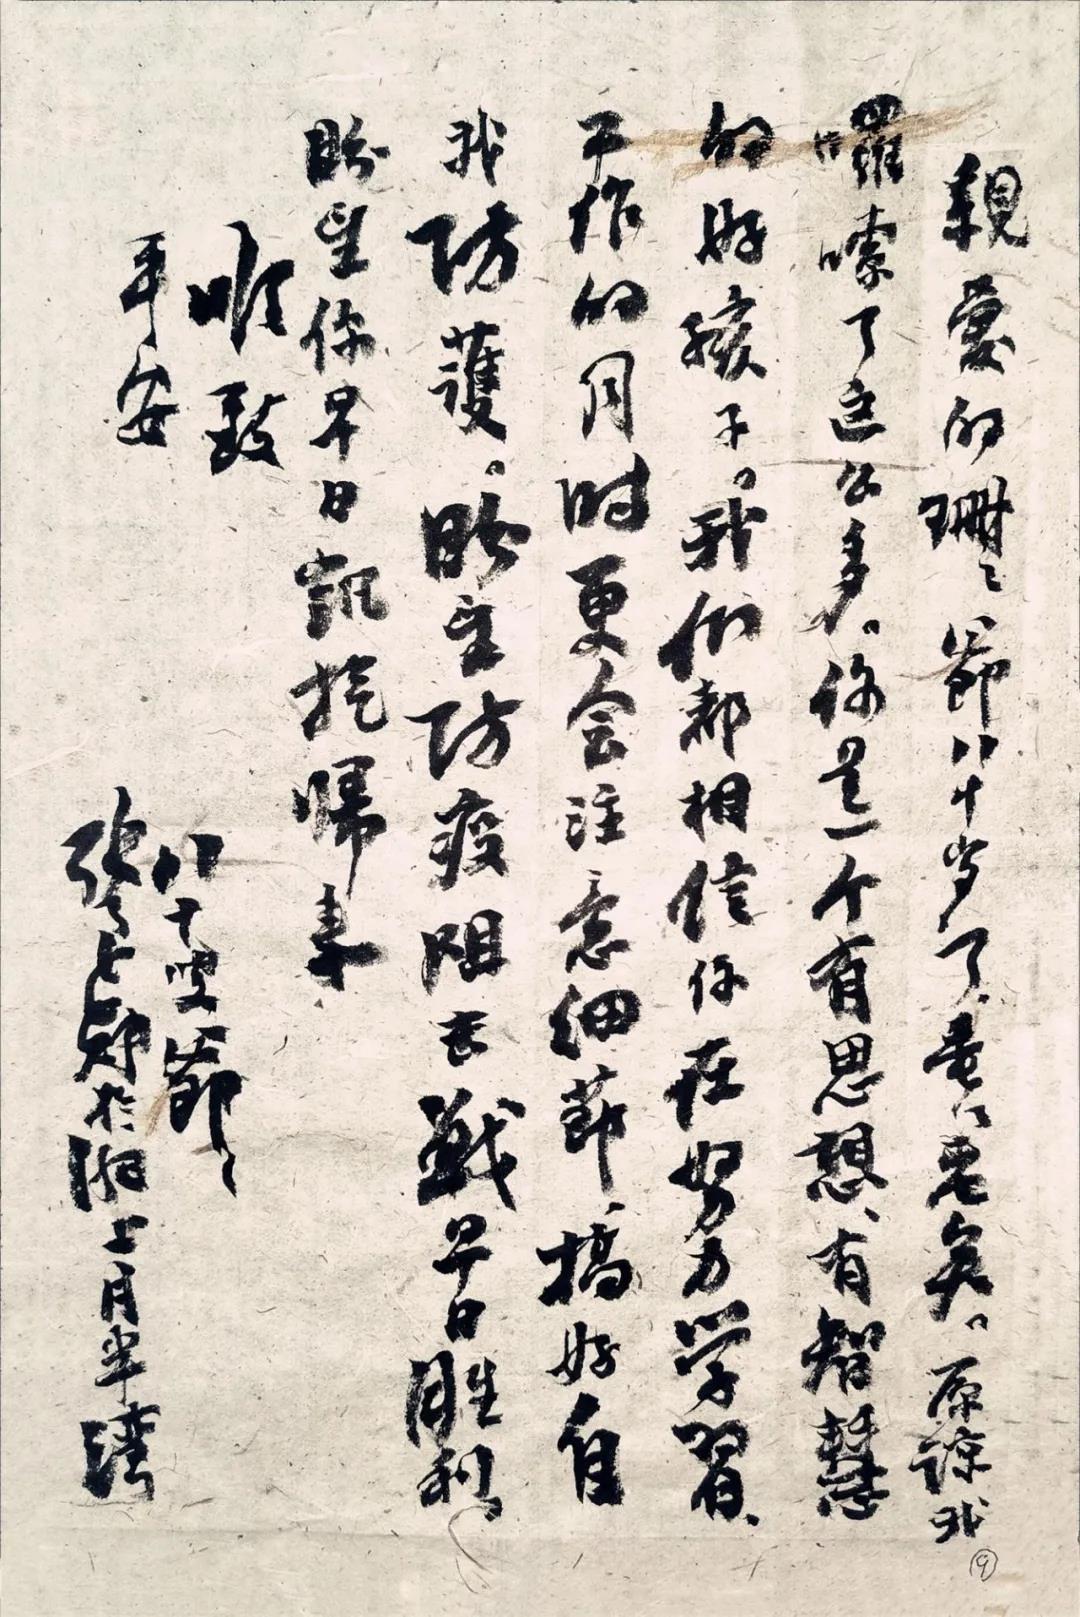 親愛的珊珊：爺八十岁了，垂垂老矣。原諒我
囉嗦了这么多。你是一个有思想、有智慧
的好孩子。我们都相信你在努力学習、
工作的同时更会注意细節，搞好自
我防護。盼望防疫阻击战早日胜利，
盼望你早日凯旋歸来。
顺致
平安
八十叟爺爺
張 於湖上月半湾
⑨